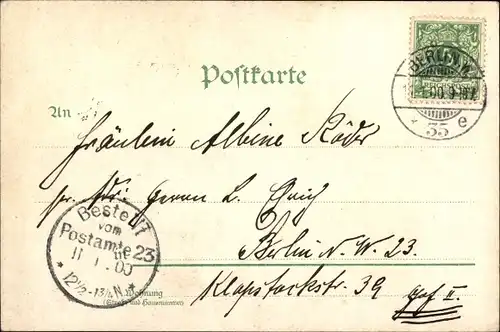 BERLIN.W.
00.9-10V
* 35 e
Postkarte
An
Fräulein Albine Röder
pr. Adr: Herrn L. Ehrich
Berlin N. W. 23.
Klopstockstr. 39 Hof II.
Bestellt
vom
Postamte 23
11 1 00
* 12½-1¾ N. *
Wohnung
(Straße und Hausnummer)